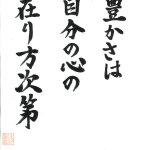 豊かさは
自分の心の
在り方次第